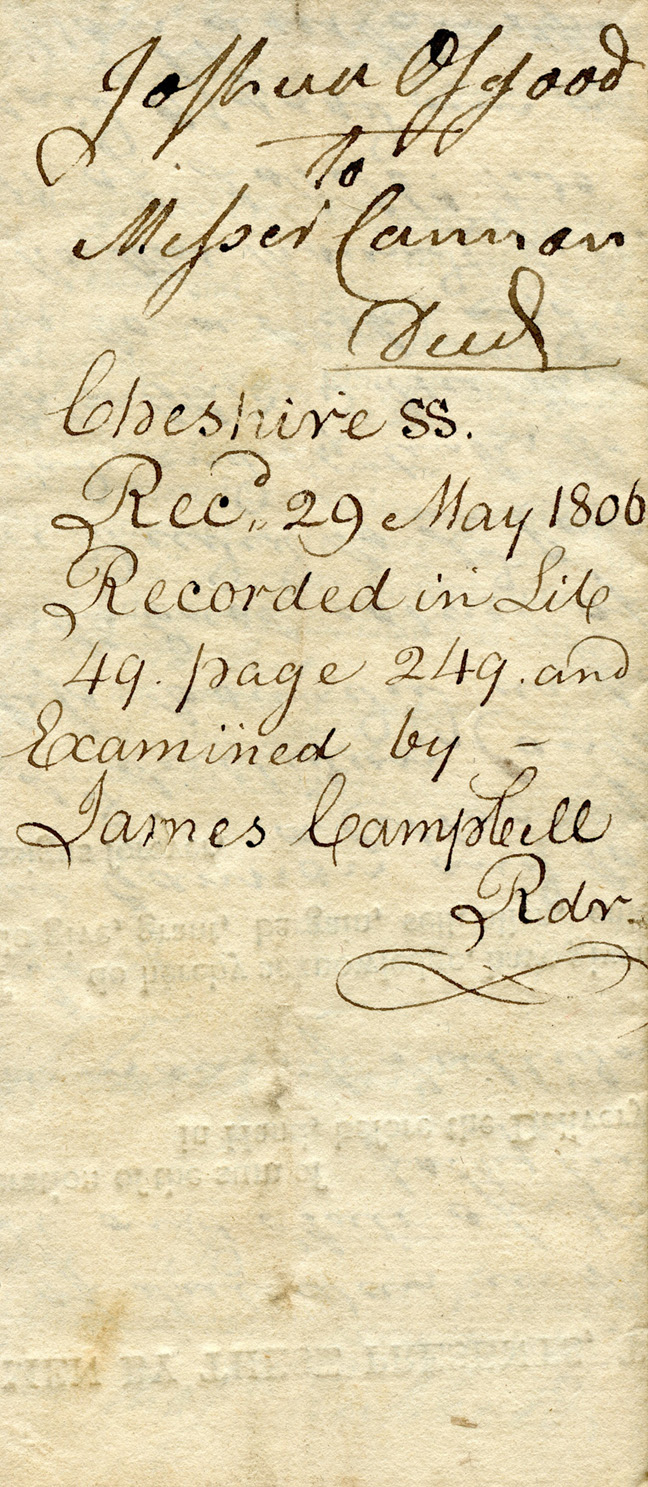 Joshua Osgood
To
Messer Cannon
Deed
Cheshire SS.
Rec.d 29 May 1806
Recorded in Lib
49. page 249. and
Examined by –
James Campbell
Rdr.